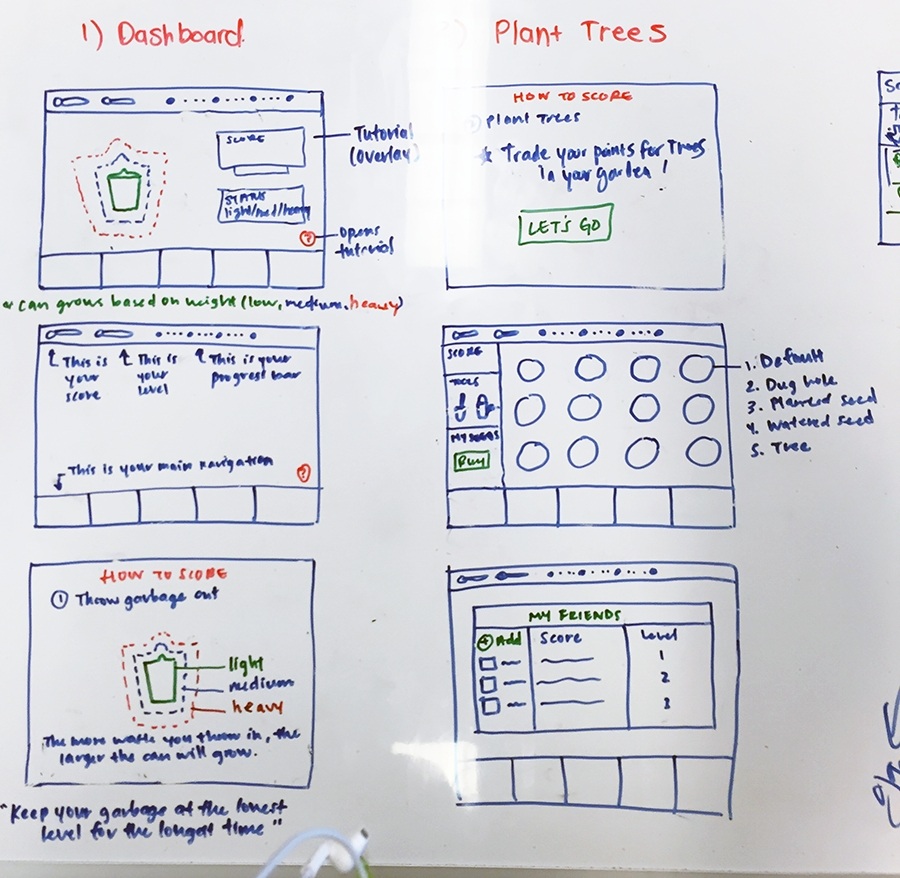 1) Dashboard
SCORE
STATUS
light/med/heavy
?
Tutorial
(overlay)
opens
tutorial
* can grows based on weight (low, medium, heavy)
This is
your
score
This is
your
level
This is your
progress bar
This is your main navigation
?
HOW TO SCORE
1 Throw garbage out
light
medium
heavy
The more waste you throw in, the
larger the can will grow.
"Keep your garbage at the lowest
level for the longest time"
Plant Trees
HOW TO SCORE
Plant Trees
* Trade your points for Trees
in your garden!
LET'S GO
SCORE
TOOLS
MY SEEDS
Buy
1. Default
2. Dug hole
3. Planted seed
4. Watered seed
5. Tree
MY FRIENDS
+ Add
Score
Level
1
2
3